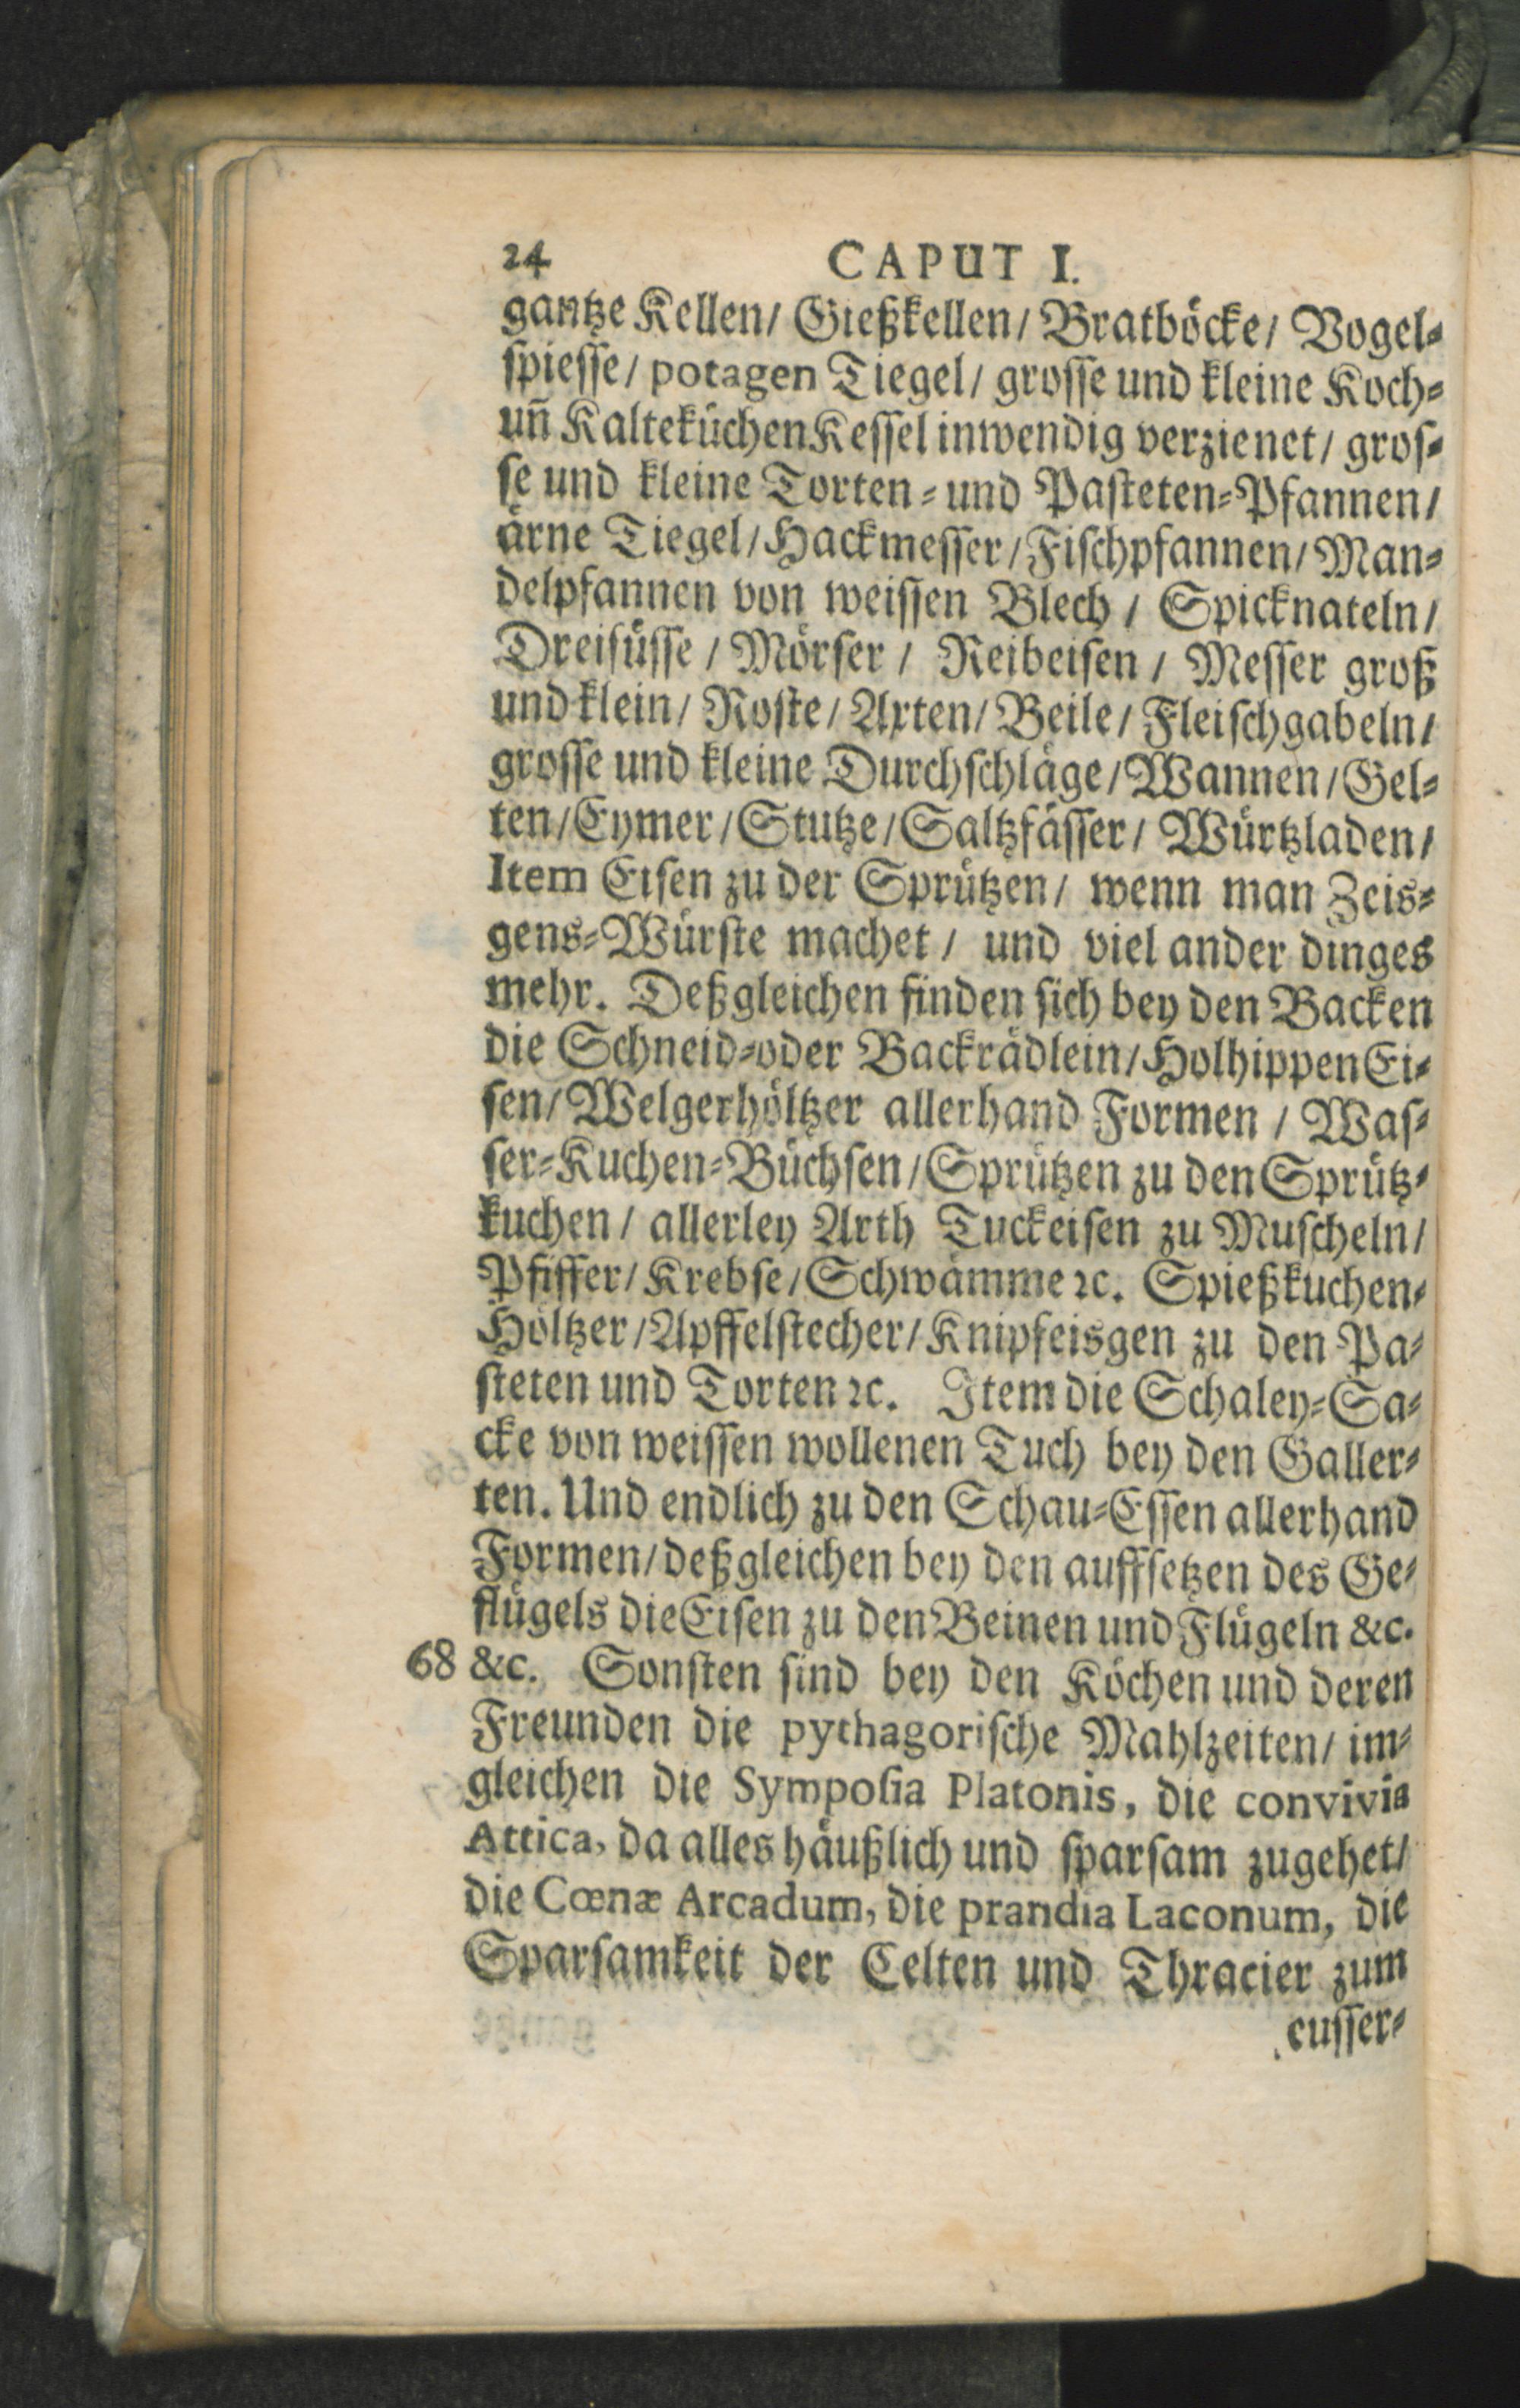 24 CAPUT I.
gantze Kellen/ Gießkellen/ Bratböcke/ Vogel-
spiesse/ potagen Tiegel/ grosse und kleine Koch-
uñ KalteküchenKessel inwendig verzienet/ gros-
se und kleine Torten- und Pasteten-Pfannen/
ärne Tiegel/Hackmesser/Fischpfannen/Man-
delpfannen von weissen Blech / Spicknateln/
Dreifüsse / Mörser / Reibeisen / Messer groß
und klein/ Roste/ Axten/ Beile/ Fleischgabeln/
grosse und kleine Durchschläge/Wannen/Gel-
ten/Eymer/Stutze/Saltzfässer/ Würtzladen/
Item Eisen zu der Sprützen/ wenn man Zeis-
gens-Würste machet / und viel ander dinges
mehr. Deßgleichen finden sich bey den Backen
die Schneid-oder Backrädlein/HolhippenEi-
sen/Welgerhöltzer allerhand Formen / Was-
ser-Kuchen-Büchsen/Sprützen zu den Sprütz-
kuchen/ allerley Arth Tuckeisen zu Muscheln/
Pfiffer/Krebse/Schwämme ꝛc. Spießkuchen-
Höltzer/Apffelstecher/Knipfeisgen zu den Pa-
steten und Torten ꝛc. Item die Schaley-Sa-
cke von weissen wollenen Tuch bey den Galler-
ten. Und endlich zu den Schau-Essen allerhand
Formen/deßgleichen bey den auffsetzen des Ge-
flügels die Eisen zu den Beinen und Flügeln &c.
68 &c. Sonsten sind bey den Köchen und deren
Freunden die pythagorische Mahlzeiten/ im-
gleichen die Symposia Platonis, die convivia
Attica, da alles häußlich und sparsam zugehet/
die Cœnæ Arcadum, die prandia Laconum, die
Sparsamkeit der Celten und Thracier zum
eusser-